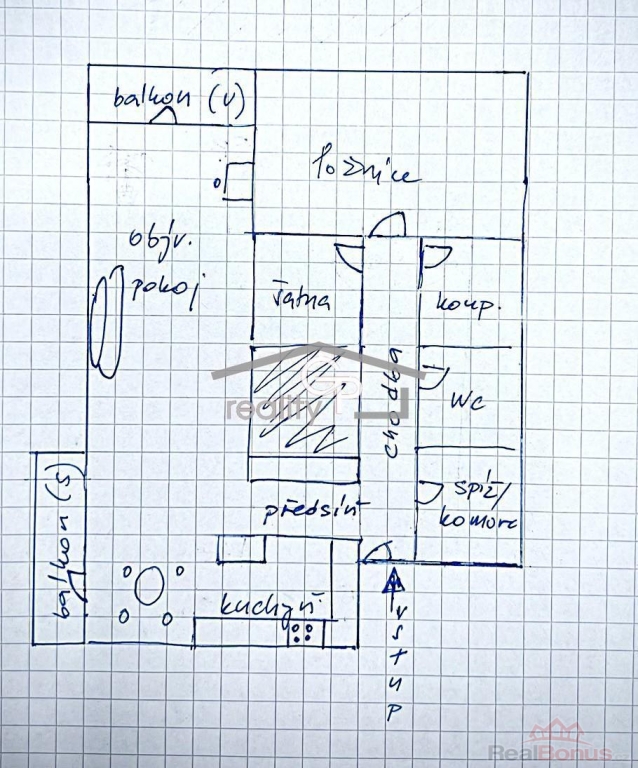 balkon (v)
ložnice
objv.
pokoj
šatna
koup.
chodba
WC
reality
GP
spiž/
komora
předsíň
balkon (s)
kuchyň
vstup
RealBonus